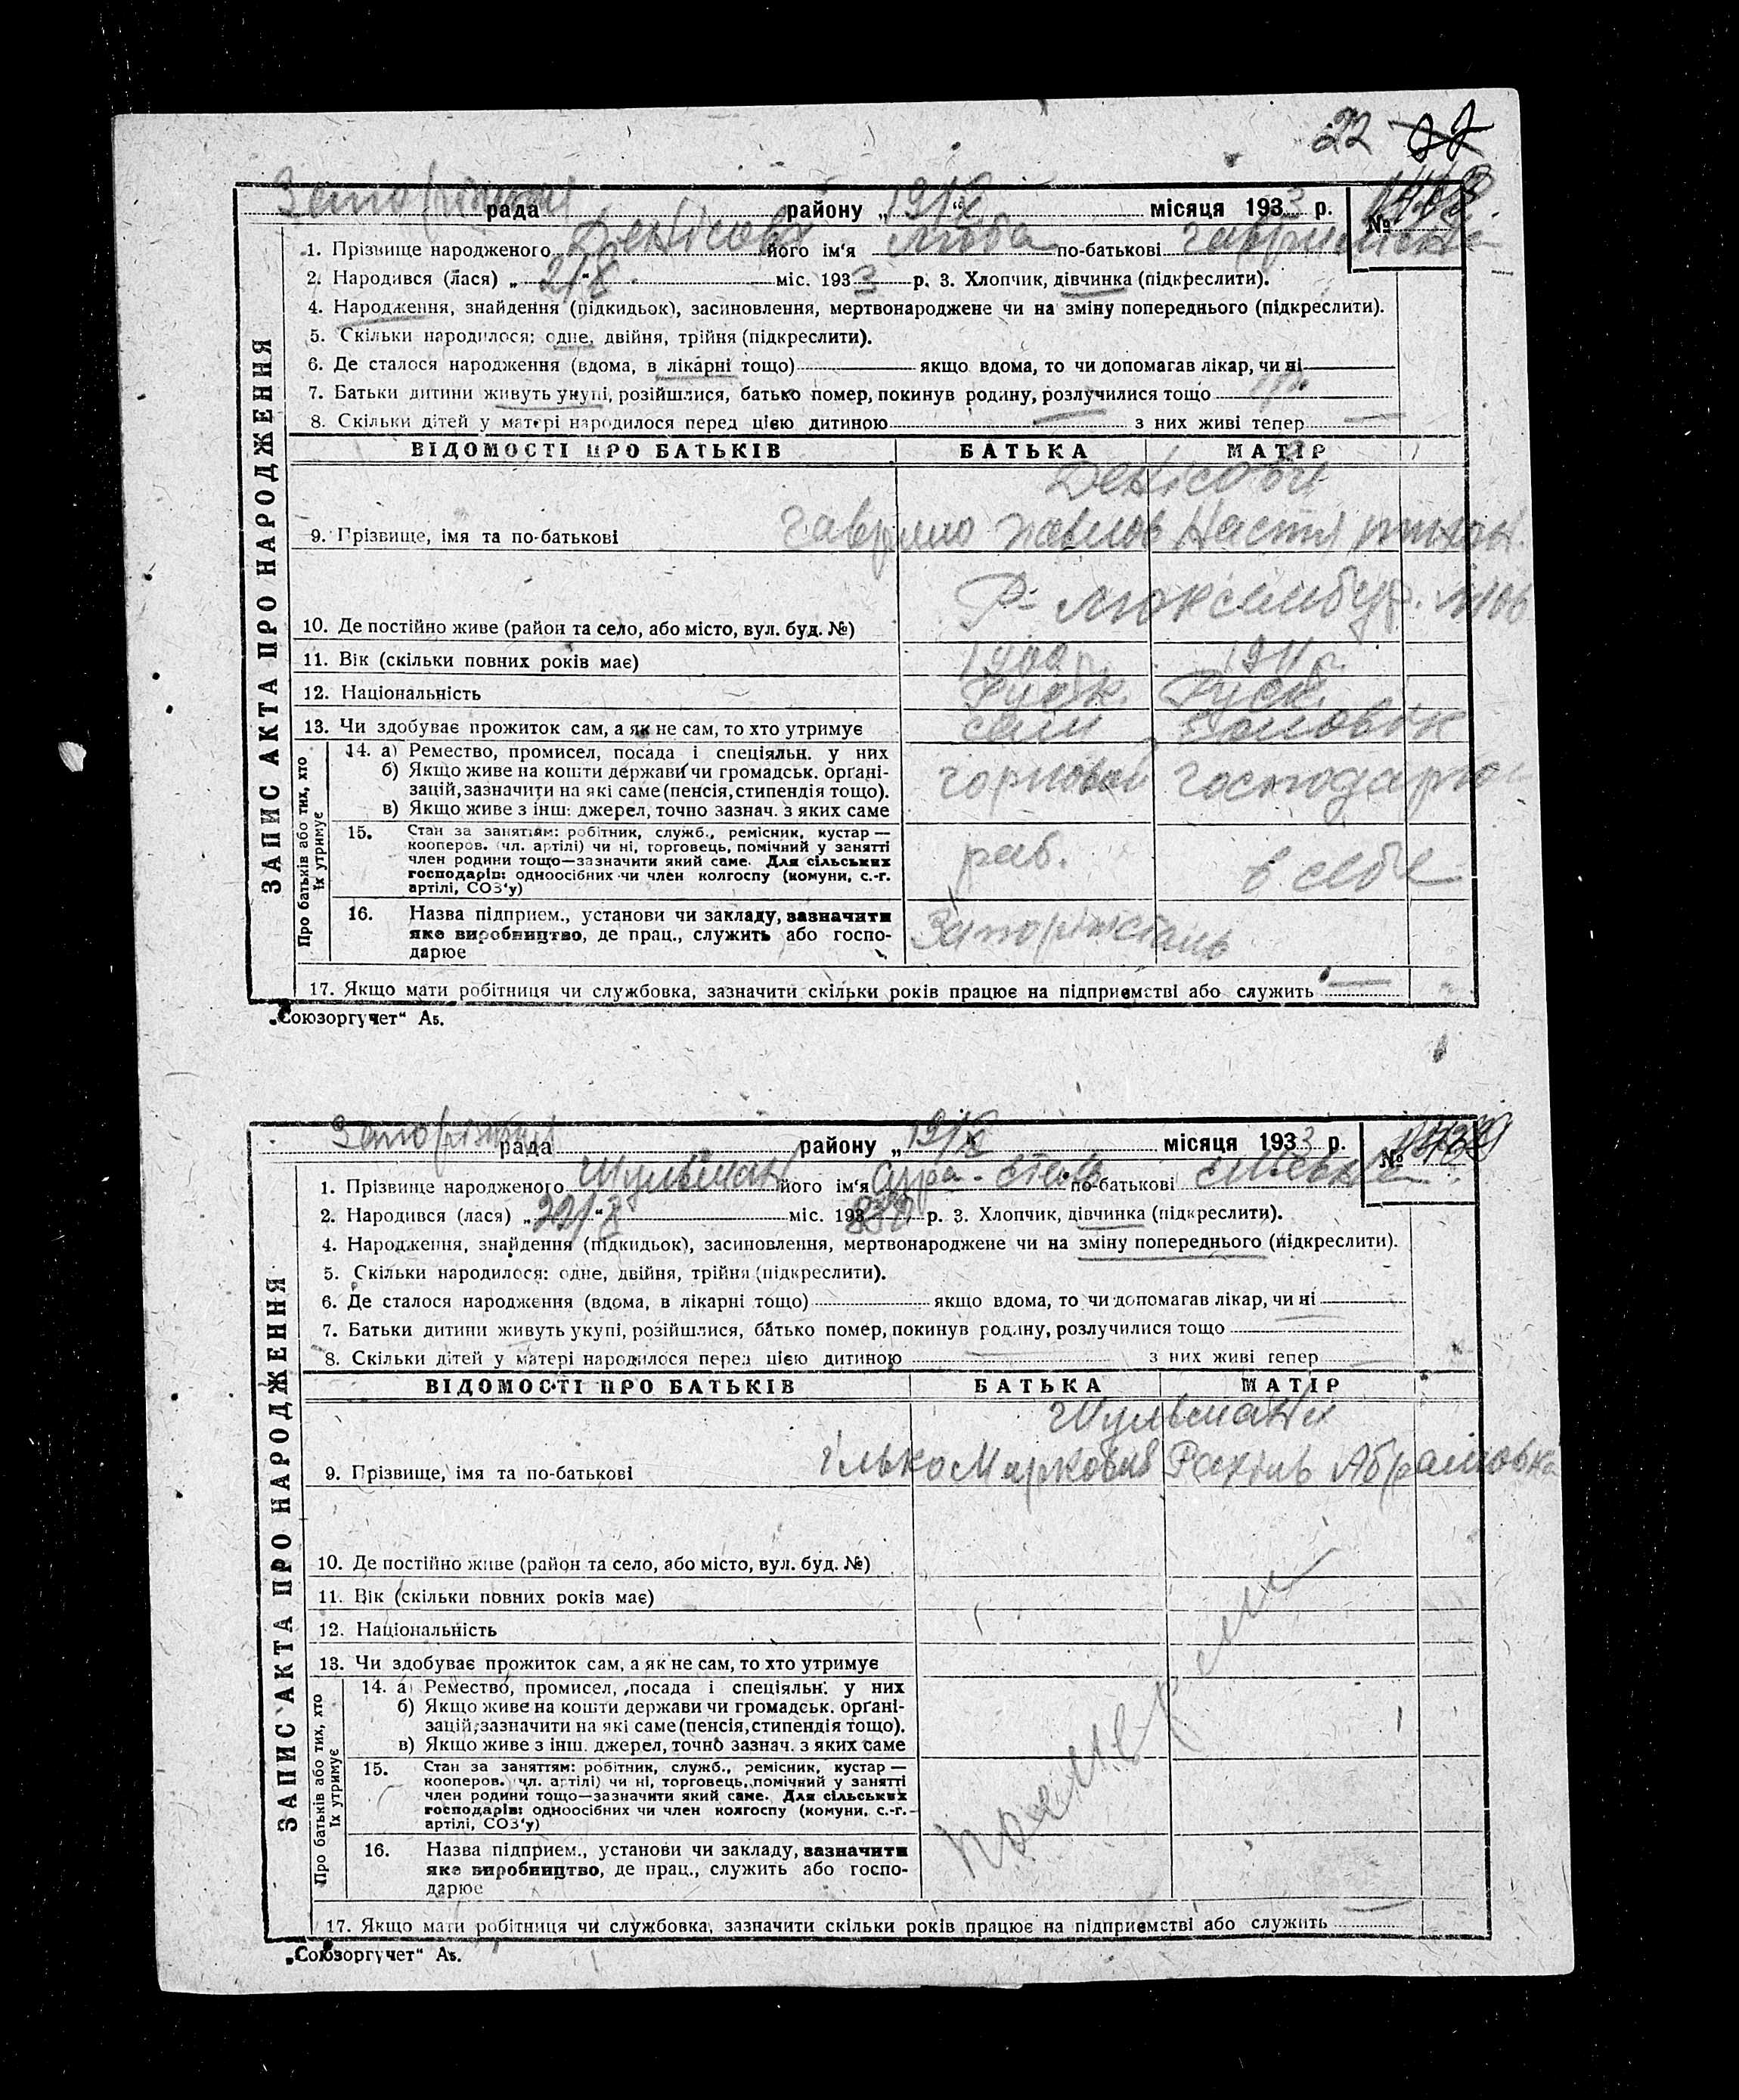 22
рада району „19/X“ місяця 1933 р. №
1. Прізвище народженого Денісова його ім‘я Люба по-батькові
2. Народився (лася) „ 2/X “ міс. 1933 р. 3. Хлопчик, дівчинка (підкреслити).
4. Народження, знайдення (підкидьок), засиновлення, мертвонароджене чи на зміну попереднього (підкреслити).
5. Скільки народилося: одне, двійня, трійня (підкреслити).
6. Де сталося народження (вдома, в лікарні тощо) якщо вдома, то чи допомагав лікар, чи ні
7. Батьки дитини живуть укупі, розійшлися, батько помер, покинув родину, розлучилися тощо
8. Скільки дітей у матері народилося перед цією дитиною з них живі тепер
ЗАПИС АКТА ПРО НАРОДЖЕННЯ
ВІДОМОСТІ ПРО БАТЬКІВ БАТЬКА МАТІР
Денісови
9. Прізвище, імя та по-батькові Гаврило Павлов Настя
10. Де постійно живе (район та село, або місто, вул. буд. №) Р-Люксембур.
11. Вік (скільки повних років має) 1911 р.
12. Національність Руск. Руск.
13. Чи здобуває прожиток сам, а як не сам, то хто утримує сам чоловік
Про батьків або тих, хто їх утримує
14. а) Ремество, промисел, посада і спеціяльн. у них
б) Якщо живе на кошти держави чи громадськ. органі-
зацій, зазначити на які саме (пенсія, стипендія тощо).
в) Якщо живе з інш. джерел, точно зазнач. з яких саме
15. Стан за заняттям: робітник, служб., ремісник, кустар —
кооперов. (чл. артілі) чи ні, торговець, помічний у занятті
член родини тощо—зазначити який саме. Для сільських
господарів: одноосібних чи член колгоспу (комуни, с.-г.
артілі, СОЗ‘у)
раб. в себе
16. Назва підприєм., установи чи закладу, зазначити
яке виробництво, де прац., служить або госпо-
дарює
Запоріжсталь
17. Якщо мати робітниця чи службовка, зазначити скільки років працює на підприємстві або служить
„Союзоргучет“ Аз.
рада району „19/X“ місяця 1933 р. №
1. Прізвище народженого Шульман його ім‘я Сурра-Стель по-батькові
2. Народився (лася) „ “ міс. 193 р. 3. Хлопчик, дівчинка (підкреслити).
4. Народження, знайдення (підкидьок), засиновлення, мертвонароджене чи на зміну попереднього (підкреслити).
5. Скільки народилося: одне, двійня, трійня (підкреслити).
6. Де сталося народження (вдома, в лікарні тощо) якщо вдома, то чи допомагав лікар, чи ні
7. Батьки дитини живуть укупі, розійшлися, батько помер, покинув родину, розлучилися тощо
8. Скільки дітей у матері народилося перед цією дитиною з них живі тепер
ЗАПИС АКТА ПРО НАРОДЖЕННЯ
ВІДОМОСТІ ПРО БАТЬКІВ БАТЬКА МАТІР
Шульмани
9. Прізвище, імя та по-батькові Ілько Маркович Рахіль Абрамовна
10. Де постійно живе (район та село, або місто, вул. буд. №)
11. Вік (скільки повних років має)
12. Національність
13. Чи здобуває прожиток сам, а як не сам, то хто утримує
Про батьків або тих, хто їх утримує
14. а) Ремество, промисел, посада і спеціяльн. у них
б) Якщо живе на кошти держави чи громадськ. органі-
зацій, зазначити на які саме (пенсія, стипендія тощо).
в) Якщо живе з інш. джерел, точно зазнач. з яких саме
15. Стан за заняттям: робітник, служб., ремісник, кустар —
кооперов. (чл. артілі) чи ні, торговець, помічний у занятті
член родини тощо—зазначити який саме. Для сільських
господарів: одноосібних чи член колгоспу (комуни, с.-г.
артілі, СОЗ‘у)
16. Назва підприєм., установи чи закладу, зазначити
яке виробництво, де прац., служить або госпо-
дарює
17. Якщо мати робітниця чи службовка, зазначити скільки років працює на підприємстві або служить
„Союзоргучет“ Аз.